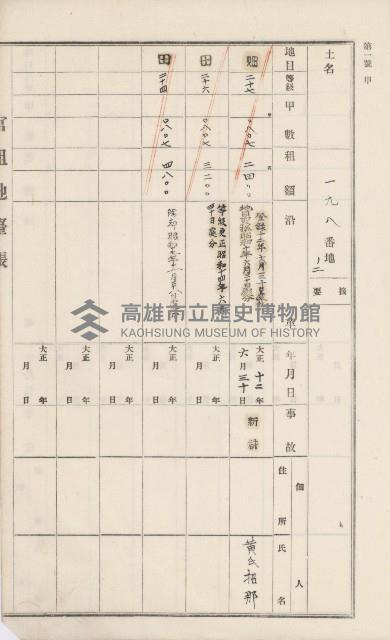 第一號甲
土名
一九八番地ノ二
摘要
地目
等級
甲數
租額
沿革
年月日
事故
佃人
住所
氏名
畑
二十七
〇八〇七
二四〇〇
登錄十二年六月三十日
大正十二年六月三十日
新
黃氏招那
田
二十六
〇八〇七
三二〇〇
等級更正昭和十四年六月
三十日處分
大正
年
月
日
田
二十四
〇八〇七
四八〇〇
除却昭和十九年十二月
大正
年
月
日
大正
年
月
日
大正
年
月
日
大正
年
月
日
官租地臺帳
高雄市立歷史博物館
KAOHSIUNG MUSEUM OF HISTORY